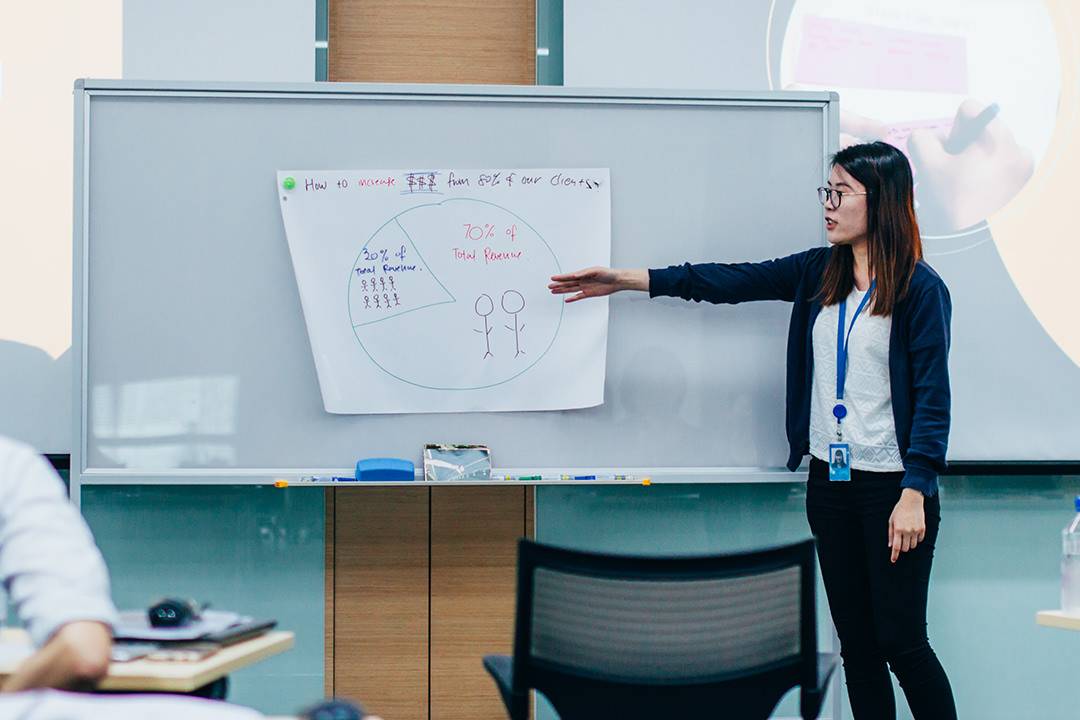 How to increase $$$ from 80% of our clients
70% of
Total Revenue
30% of
Total Revenue.